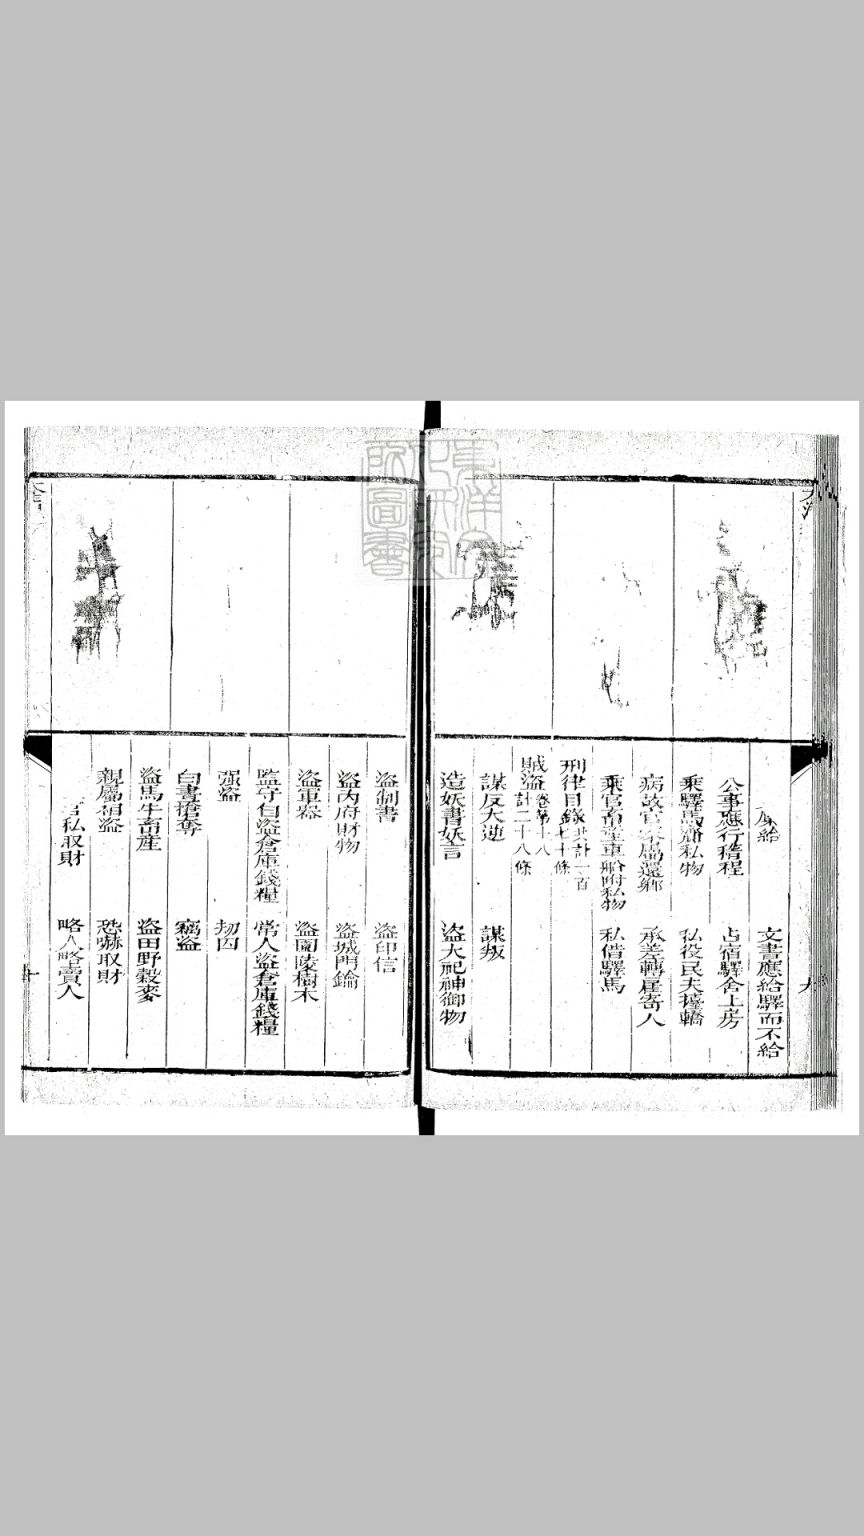 廩給　文書應給驛而不給
公事應行稽程　占宿驛舍上房
乘驛馬齎私物　私役民夫擡轎
病故官家屬還鄉　承差轉雇寄人
乘官畜產車船附私物　私借驛馬
刑律目錄共計一百七十條
賊盜卷第十八計二十八條
謀反大逆　謀叛
造妖書妖言　盜大祀神御物
九
盜制書　盜印信
盜內府財物　盜城門鑰
盜軍器　盜園陵樹木
監守自盜倉庫錢糧　常人盜倉庫錢糧
强盜　刼囚
白晝搶奪　竊盜
盜馬牛畜產　盜田野穀麥
親屬相盜　恐嚇取財
官私取財　略人略賣人
十